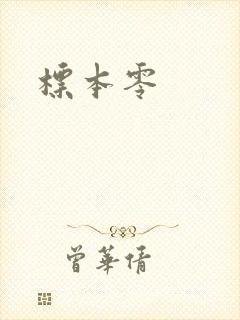 標本零
曾華倩